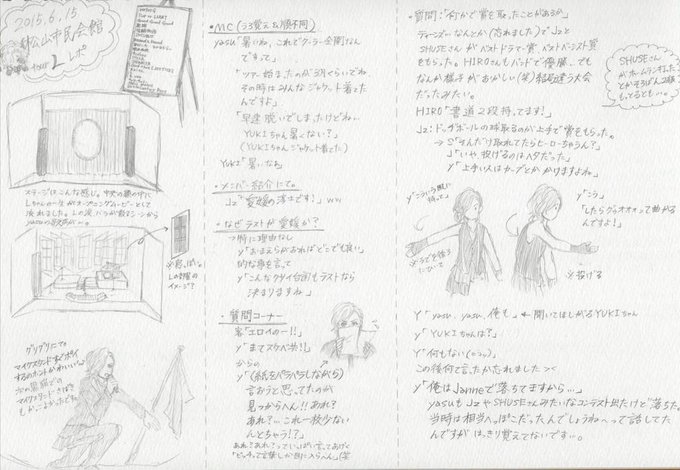 2015.6.15
松山市民会館
tour L レポ
ステージはこんな感じ。中央の額の中に
Lちゃんの一生がオープニングムービーとして
流れました。Lの涙、バラが散るシーンから
yasuの歌声が…。
※窓、ぽい
Lの部屋の
イメージ?
グリグリにて。
マイクスタンド
マイクスタンドさばき
もかっこよかったです。
・MC(うろ覚え&順不同)
yasu「暑いね、これでクーラー全開なん
ですって」
「ツアー始まったのが3月くらいでね
その時はみんなジャケット着てた
んですよ」
「早速脱いでしまったけどねぃ
YUKIちゃん暑くない?」
(YUKIちゃんジャケット着てた)
YUKI「暑いなぁ」
・メンバー紹介にて。
Jz「愛媛の淳士です!」ww
・なぜラストが愛媛か?
→特に理由なし
y「おまえらがおればどこでも良い」
的な事を言って
y「こんなクダイ台詞もラストなら
決まりますね」
・質問コーナー
客「エロイのー!!」
y「まてスケベ共!」
からの
y「(紙をパラパラしながら)
言おうと思ってたのが
見つからへん!!あれ?
あれ?…これ一枚少ない
んとちゃう!?」
あれ?あれ?っていっぱい言ってあげく
「ビッチって言葉しか目に入らへん」(笑
・質問:「何かで賞を取ったことがあるか」
ティーンズなんとか(忘れました)でJzと
SHUSEさんがベストドラマー賞、ベストベーシスト賞
をもらった。HIROさんもバンドで優勝…でも
なんか様子がおかしい(笑)結局違う大会
だったみたい。
HIRO「書道2段持ってます!」
SHUSEさん
がホームラン
とかそろばん2級
もってるとも…。
Jz:ドッヂボールの球取るのが上手で賞をもらった。
→S「そんだけ取れてたらヒーローちゃうん?」
J「いや、投げるのはヘタだった」
y「上手い人はカーブとかかけますよね」
y「こういう風に
持って」
※うでを後ろ
にひいて
y「こう」
「したらグゥオオォって曲がる
んですよ!」
※投げる
Y「yasu、yasu、俺も」←聞いてほしがるYUKIちゃん
y「YUKIちゃんは?」
Y「何もない(・ω・)」
この後何て言たか忘れました><
y「俺はJanneで落ちてますから…」
yasuもJzやSHUSEさんみたいなコンテスト出たけど落ちた。
当時は相当へっぽこだったんでしょうね~って話してた
んですがはっきり覚えてないです…。